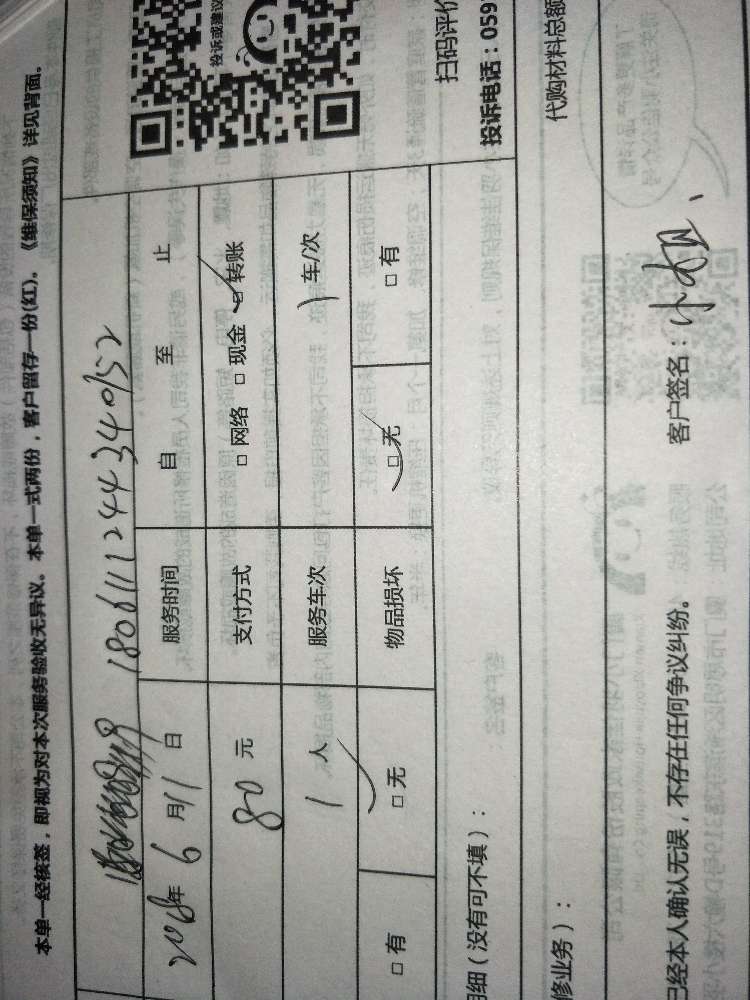 本单一经核签，即视为对本次服务验收无异议。本单一式两份，客户留存一份(红)。《维保须知》详见背面。
1806111244340152
2018年6月11日 服务时间 自 至 止
80元 支付方式 □网络 □现金 □转账
1人 服务车次 1车/次
□有 □无 物品损坏 □无 □有
投诉或建议
扫码评价
投诉电话：059
明细（没有可不填）：
代购材料总额
修业务）：
已经本人确认无误，不存在任何争议纠纷。 客户签名：